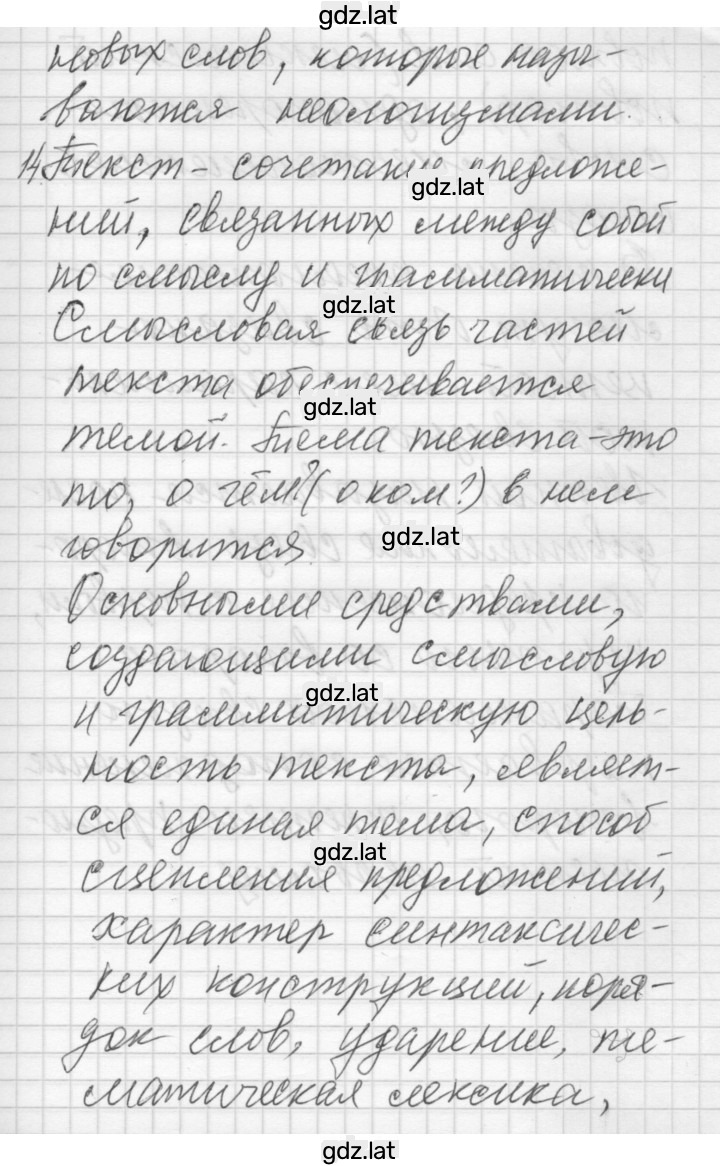 gdz.lat
новых слов, которые назы-
ваются неологизмами.
14. Текст - сочетание предложе-
gdz.lat
ний, связанных между собой
по смыслу и грамматически
gdz.lat
Смысловая связь частей
текста обеспечивается
gdz.lat
темой. Тема текста - это
то, о чём? (о ком?) в нем
gdz.lat
говорится.
Основными средствами,
создающими смысловую
gdz.lat
и грамматическую цель-
ность текста, являет-
ся единая тема, способ
gdz.lat
сцепления предложений,
характер синтаксичес-
ких конструкций, поря-
док слов, ударение, те-
матическая лексика,
gdz.lat